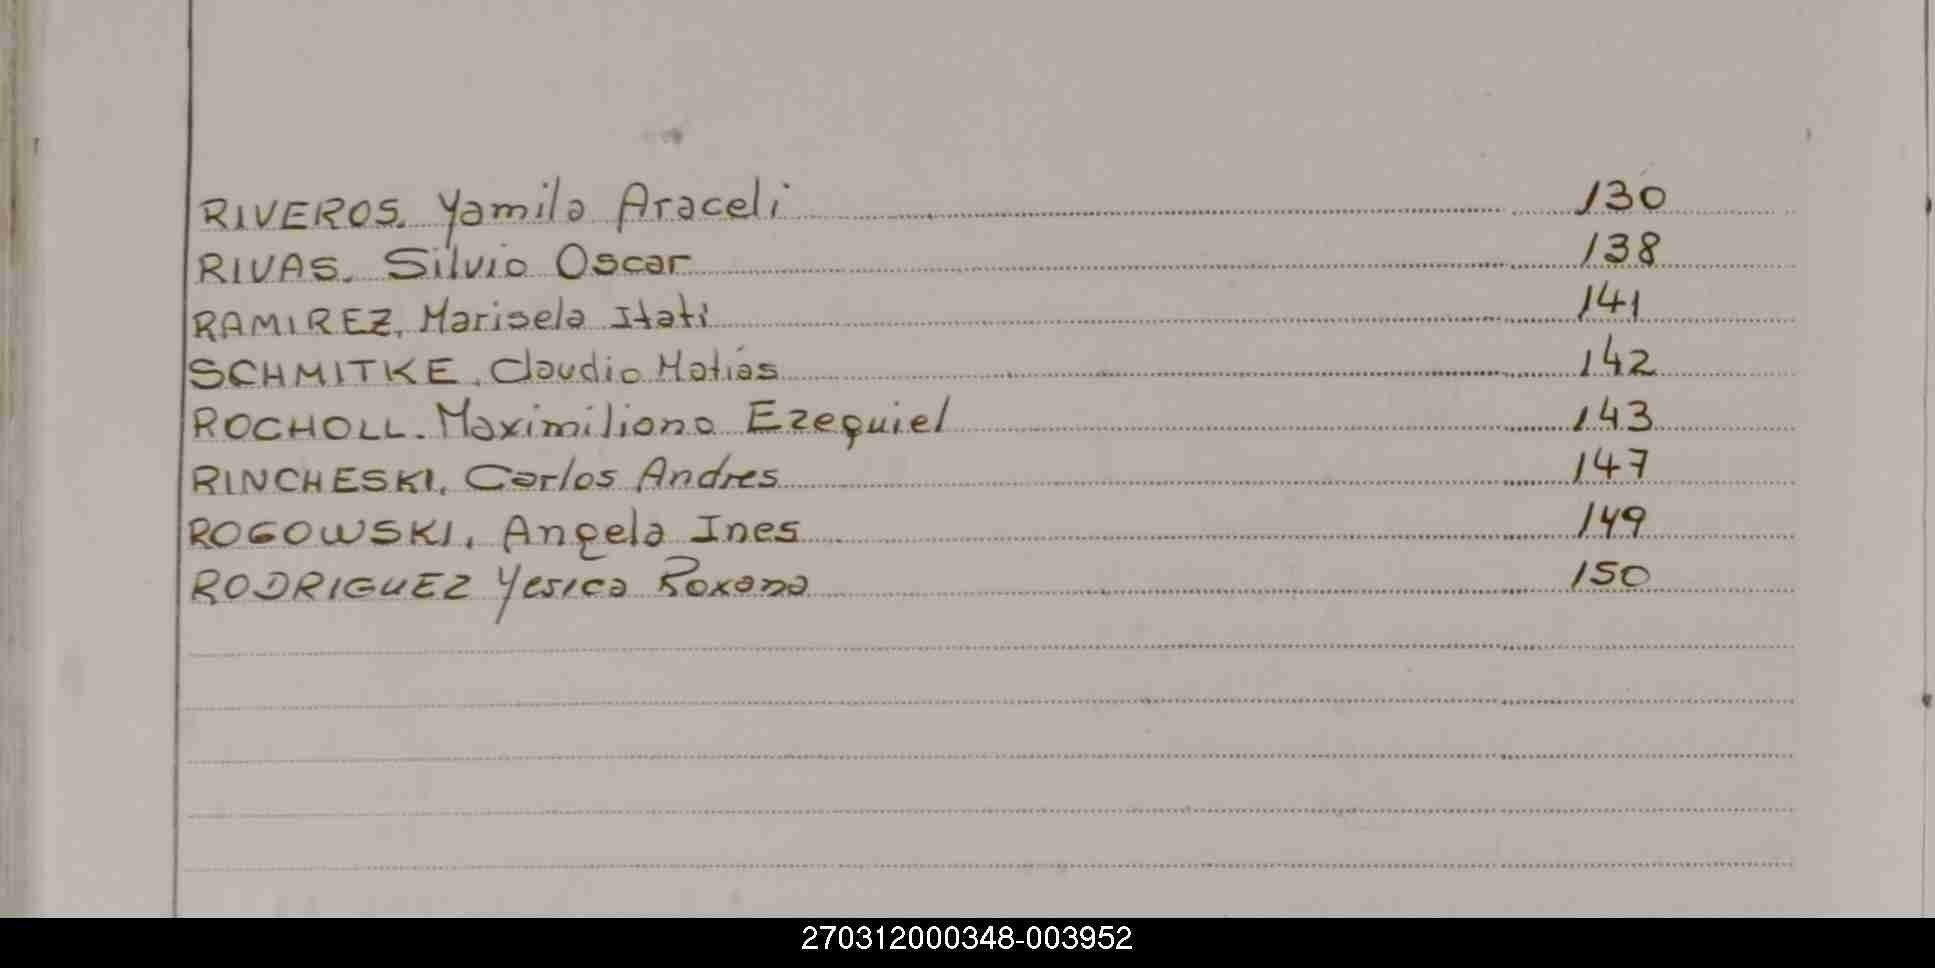 RIVEROS. Yamila Araceli 130
RIVAS. Silvio Oscar 138
RAMIREZ, Marisela Itati 141
SCHMITKE, Claudio Matías 142
ROCHOLL. Maximiliano Ezequiel 143
RINCHESKI, Carlos Andres 147
ROGOWSKI, Angela Ines 149
RODRIGUEZ Yesica Roxana 150
270312000348-003952